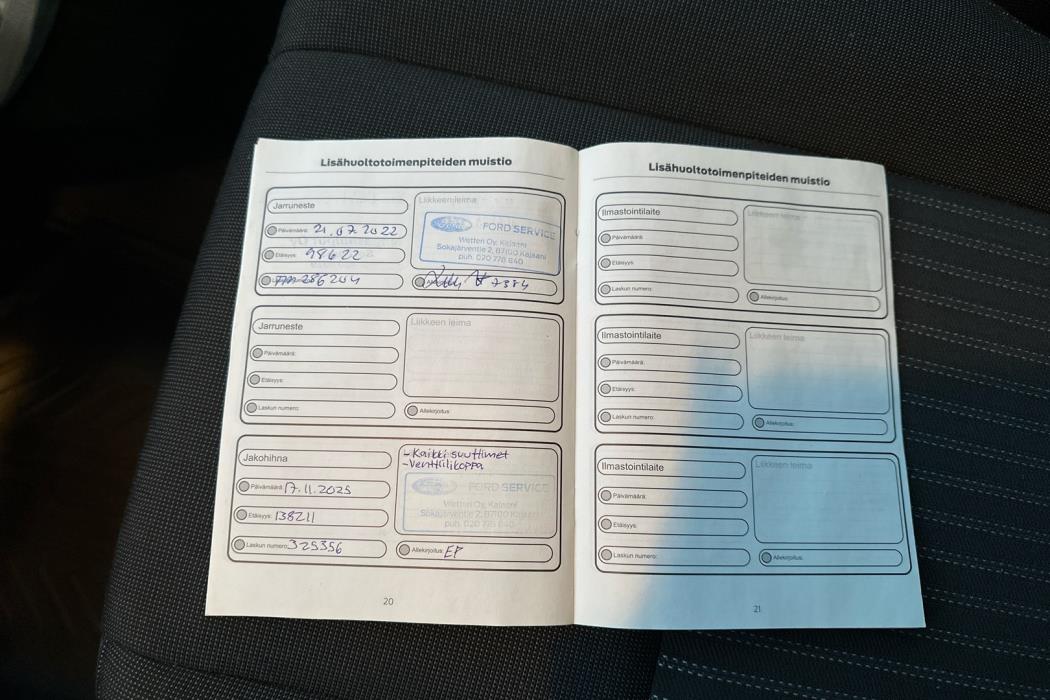 Lisähuoltotoimenpiteiden muistio
Jarruneste
Päivämäärä: 21.07.2022
Etäisyys: 98622
286204
Liikkeen leima
Ford FORD SERVICE
Wetteri Oy, Kajaani
Sokajärventie 2, 87100 Kajaani
puh. 020 778 640
7384
Jarruneste
Päivämäärä:
Etäisyys:
Laskun numero:
Liikkeen leima
Allekirjoitus:
Jakohihna
Päivämäärä: 17.11.2025
Etäisyys: 138211
Laskun numero: 325356
-Kaikki suuttimet
-Venttiilikoppa
Ford FORD SERVICE
Wetteri Oy, Kajaani
Sokajärventie 2, 87100 Kajaani
puh. 020 778 640
Allekirjoitus: EP
20
Lisähuoltotoimenpiteiden muistio
Ilmastointilaite
Päivämäärä:
Etäisyys:
Laskun numero:
Liikkeen leima
Allekirjoitus:
Ilmastointilaite
Päivämäärä:
Etäisyys:
Laskun numero:
Liikkeen leima
Allekirjoitus:
Ilmastointilaite
Päivämäärä:
Etäisyys:
Laskun numero:
Liikkeen leima
Allekirjoitus:
21